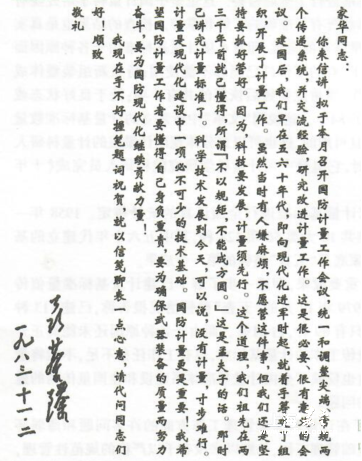 家华同志：
你来信讲，拟于本月召开国防计量工作会，统一和调整两端、成一
个传递系统，并交流经验，研究改进计量工作。这是很必要、很有意义的会
议。建国后，我们早在五、六十年代，即向现代化进军时起，就着手筹划、组
织，开展了计量工作。虽然当时有人嫌麻烦，不愿管这件事，但我们还是坚
持要抓好管好。因为，科技要发展，计量须先行。这个道理，我们祖先在两
三千年前就已懂得，所谓「不以规矩，不能成方圆」，这是孟夫子的话。那时
已讲究计量标准了。科学技术发展到今天，可以说，没有计量，寸步难行。
计量是现代化建设中一项必不可少的技术基础。国防计量尤其重要，我希
望国防计量工作者要懂得自己身负重责，要为确保武器装备的质量而努力
奋斗，要为国防现代化继续贡献力量！
我现在手不好握笔题词祝贺，就以信笺聊表一点心意，请代问同志们好。
敬礼！
聂荣臻
一九八三·十一·二